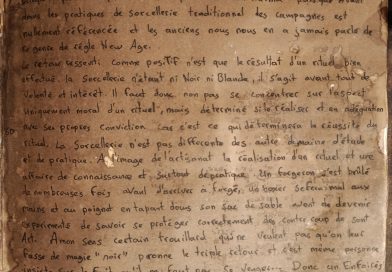 dans les pratiques de sorcellerie traditionnel des campagnes est
nullement référencée et les anciens nous nous en a jamais parlé de
ce genre de règle New Age.
Le retour ressenti comme positif n'est que le résultat d'un rituel bien
effectué. la Sorcellerie n'étant ni Noir ni Blanche, il s'agit avant tout de
volonté et intérêt. Il faut donc non pas se concentrer sur l'aspect
uniquement moral d'un rituel, mais déterminé si te réaliser et en adéquation
avec ses propres conviction car c'est ce qui déterminera la réussite du
rituel. La Sorcellerie n'est pas différente des autre domaine d'étude
et de pratique. A l'image de l'artisanat la réalisation d'un rituel et une
affaire de connaissance et surtout de pratique. Un forgeron s'est brûlé
de nombreuses fois avant d'arriver à forger, un boxer se fera mal aux
mains et au poignet en tapant dans son sac de sable avant de devenir
experiments de savoir se protéger correctement des contre coup de son
Art. A mon sens certain trouillard qui ne veulent pas qu'on leur
fasse de magie "noir" prone le triple retour et c'est même personne
se venger... Donc un Enfoiré